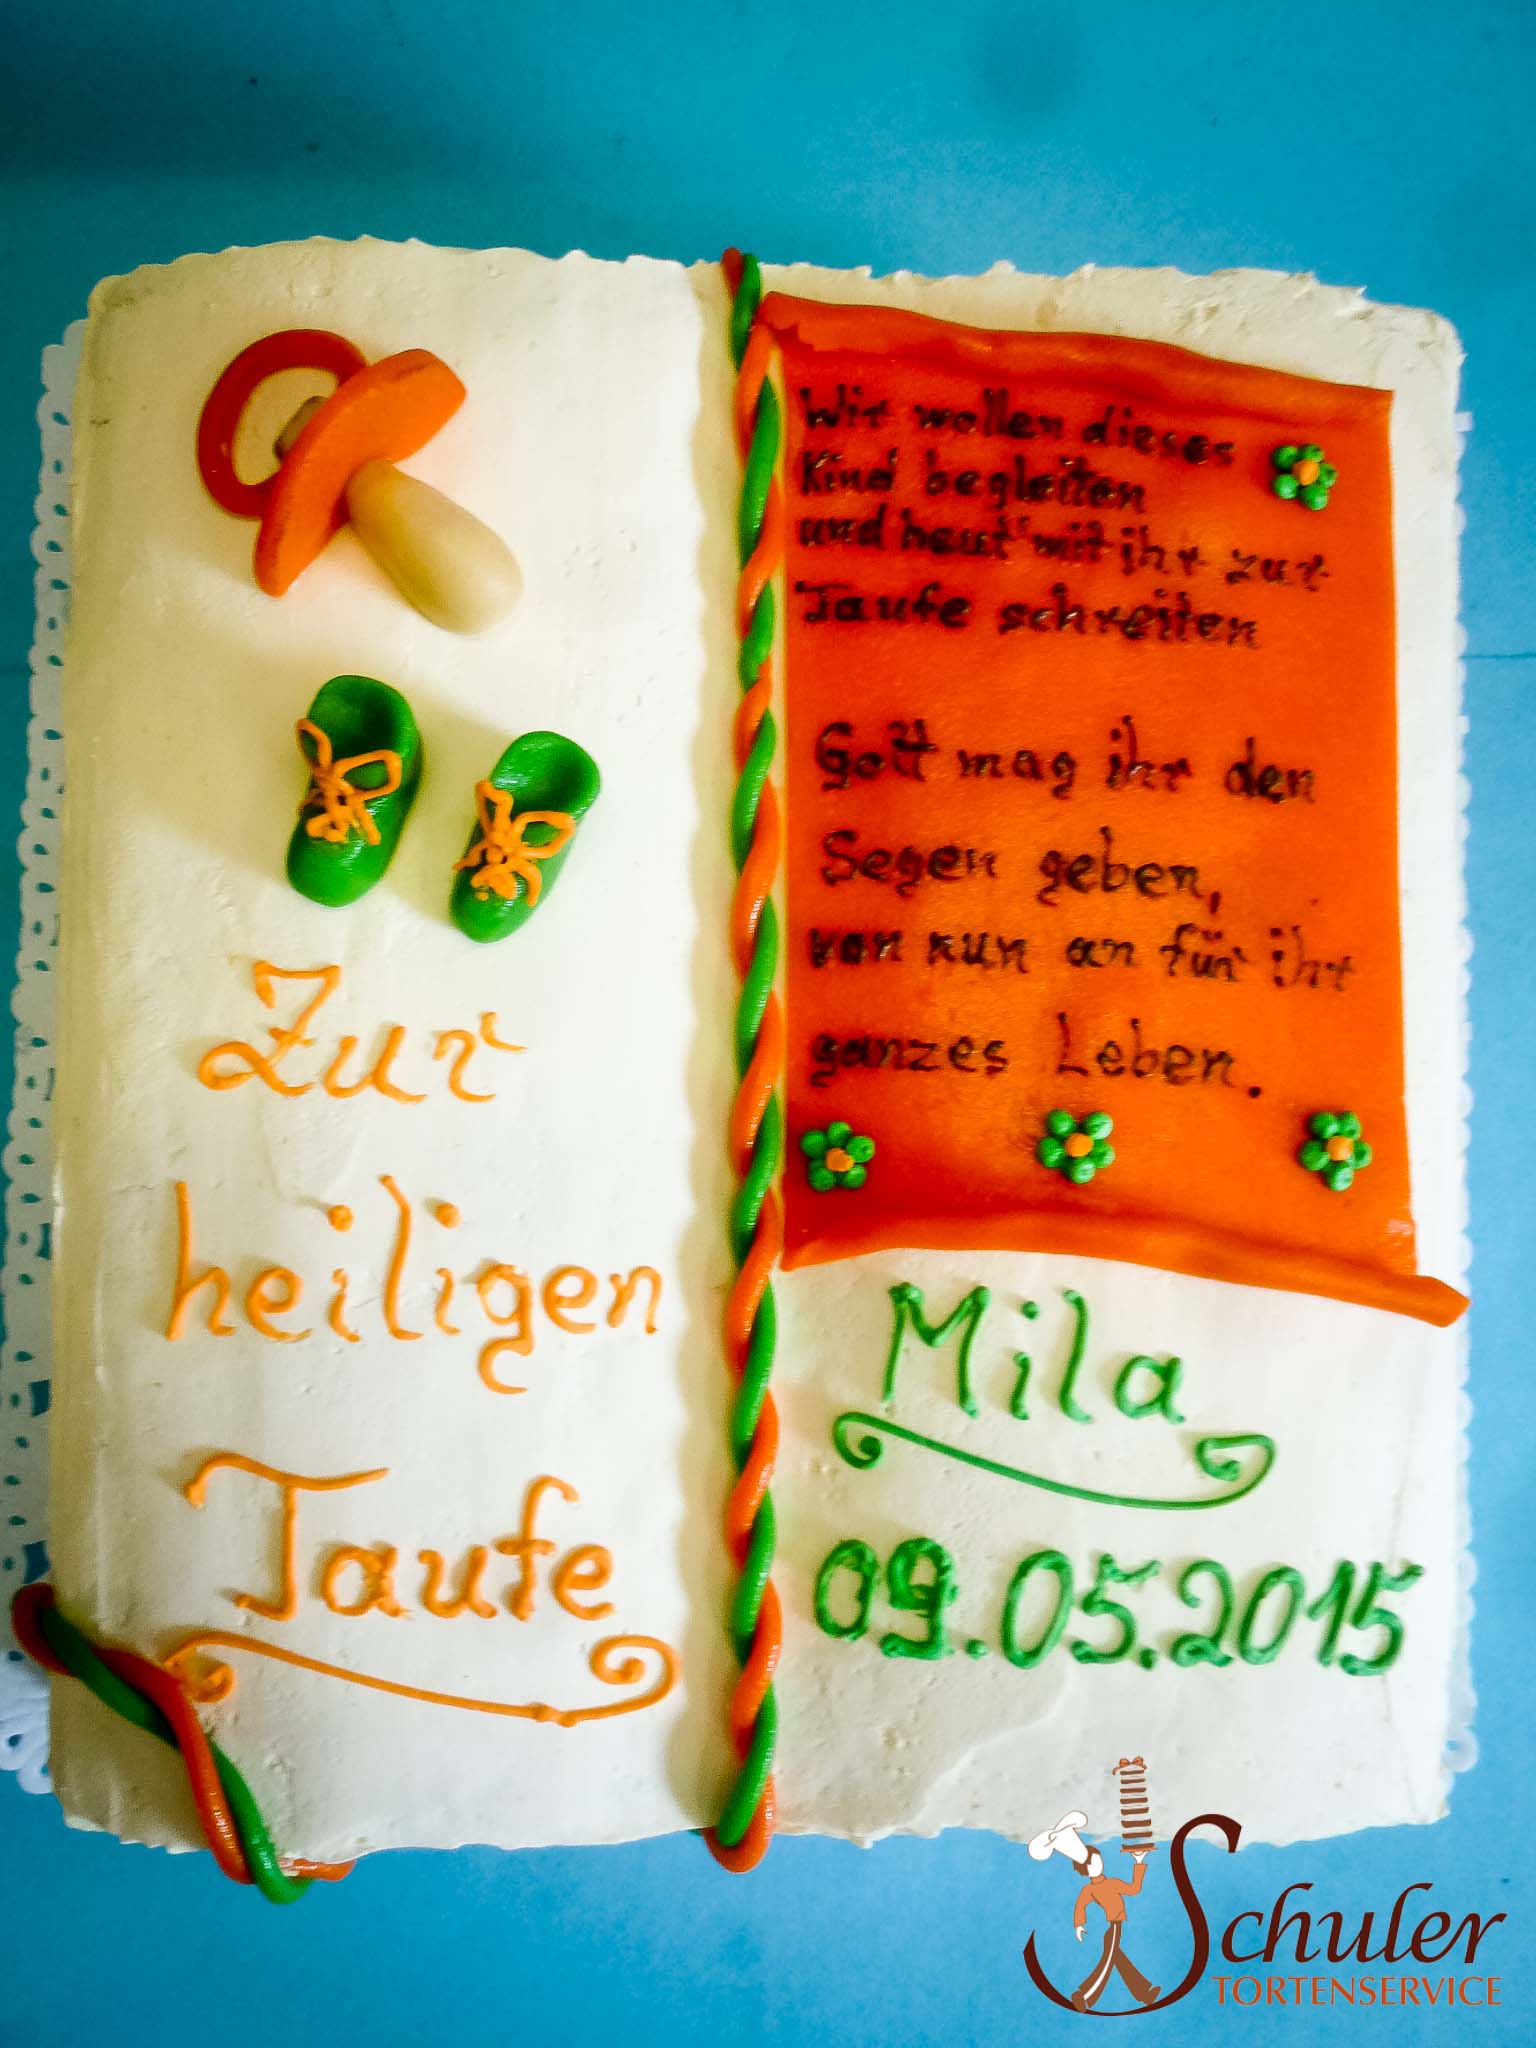 Zur
heiligen
Taufe
Wir wollen dieses
Kind begleiten
und heut' mit ihr zur
Taufe schreiten
Gott mag ihr den
Segen geben,
von nun an für ihr
ganzes Leben.
Mila
09.05.2015
Schuler
TORTENSERVICE